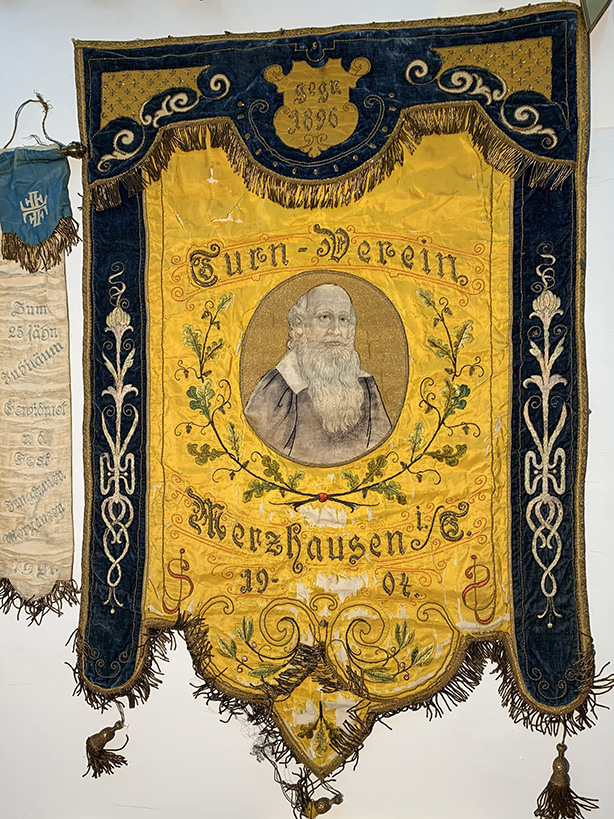 gegr.
1896
Turn-Verein
Merzhausen i/T.
19-04.
Zum
25 jähr.
Jubiläum
Gewidmet
v. d.
Fest
Merzhausen
1921